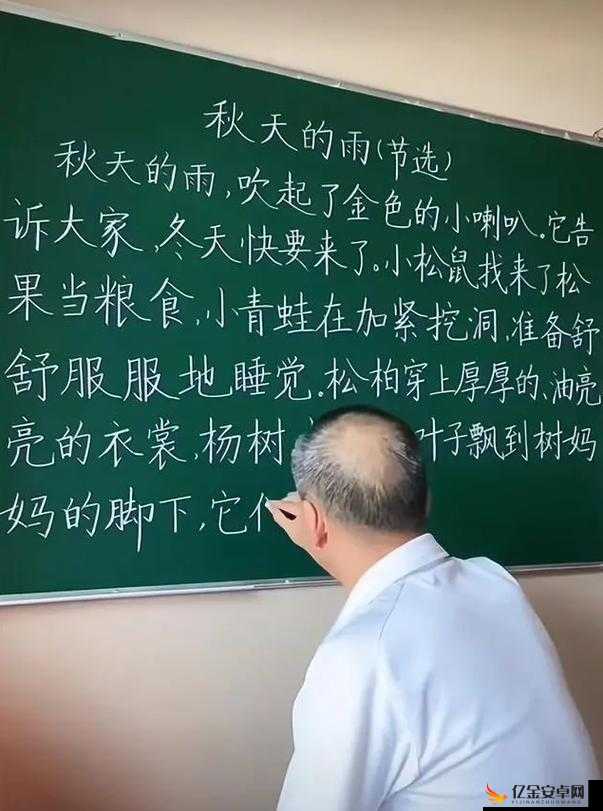 秋天的雨(节选)
秋天的雨,吹起了金色的小喇叭。它告
诉大家,冬天快要来了。小松鼠找来了松
果当粮食,小青蛙在加紧挖洞,准备舒
舒服服地睡觉。松柏穿上厚厚的、油亮
亮的衣裳,杨树 叶子飘到树妈
妈的脚下,它
亿金安卓网
YIJINANZHUOWANG